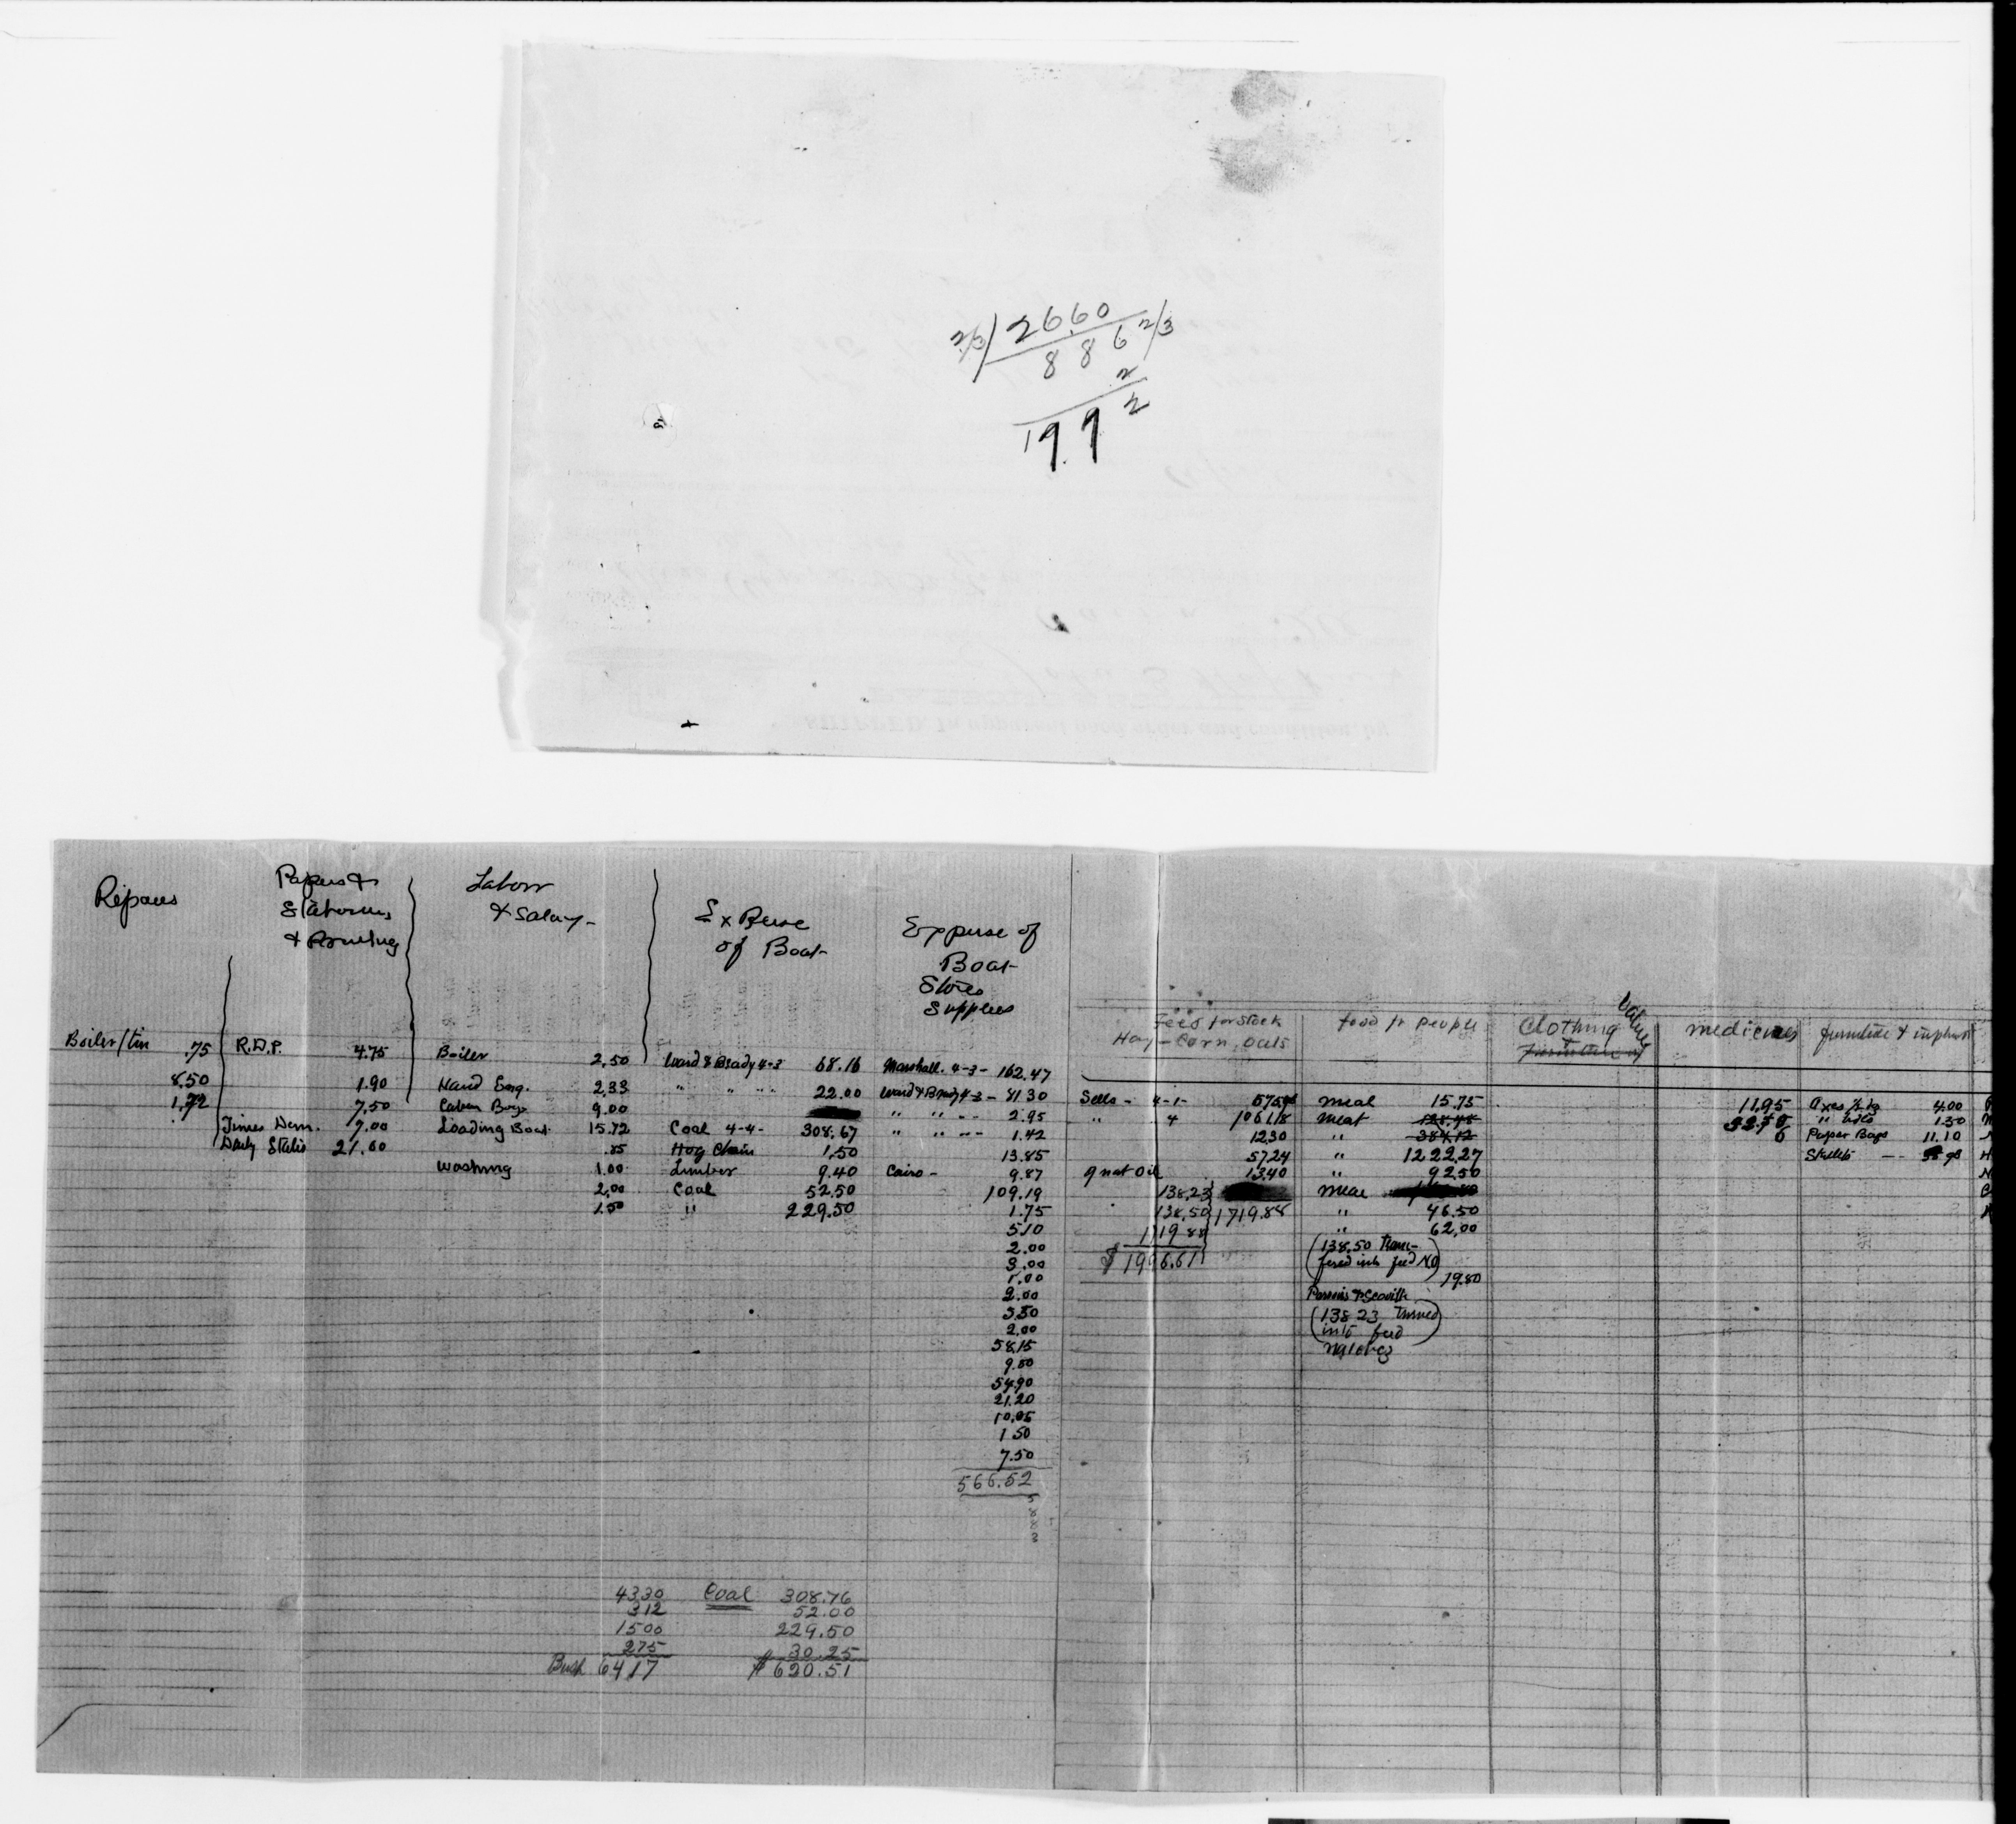 2/3) 2660
886 2/3
2
1992
Repairs
Boiler/tin .75
8.50
1.72
Papers &
Stationery
& Printing
R.D.P. 4.75
1.90
7.50
Times Dem. 7.00
Daily States 21.60
Labor
& Salary-
Boiler 2.50
Hand Eng. 2.33
Cabin Boys 9.00
Loading Boat 15.72
.85
Washing 1.00
2.00
1.50
Expense
of Boat
Ward & Brady 4-3 68.16
" " " " 22.00
Coal 4-4- 308.67
Hog Chain 1.50
Lumber 9.40
Coal 52.50
" 229.50
Expense of
Boat
Stores
Supplies
Marshall. 4-3- 162.47
Ward & Brady 4-3- 81.30
" " - - 2.95
" " - - 1.42
13.85
Cairo - 9.87
109.19
1.75
5.10
2.00
3.00
1.00
2.00
3.50
2.00
58.15
9.80
54.90
21.20
10.05
1.50
7.50
566.52
5
8
8
3
4330 Coal 308.76
312 52.00
1500 229.50
275 30.25
Bush 6417 $620.51
Feed for Stock
Hay - Corn, Oats
Sells - 4-1-
" 4 1061.18
12.30
57.24
Gnat Oil 13.40
138.23
138.50 1719.88
1719.88
$1996.61
food for people
Meal 15.75
Meat 128.48
" 384.12
" 1222.27
" 92.50
Meal
" 46.50
" 62.00
(138.50 Trans-
fered into feed NO)
19.80
(138.23 Turned
into feed
Clothing
Furniture of
value
medicines
11.95
furniture & implmts
Axes 4.00
" 1.50
Paper Bags 11.10
Skillets - -